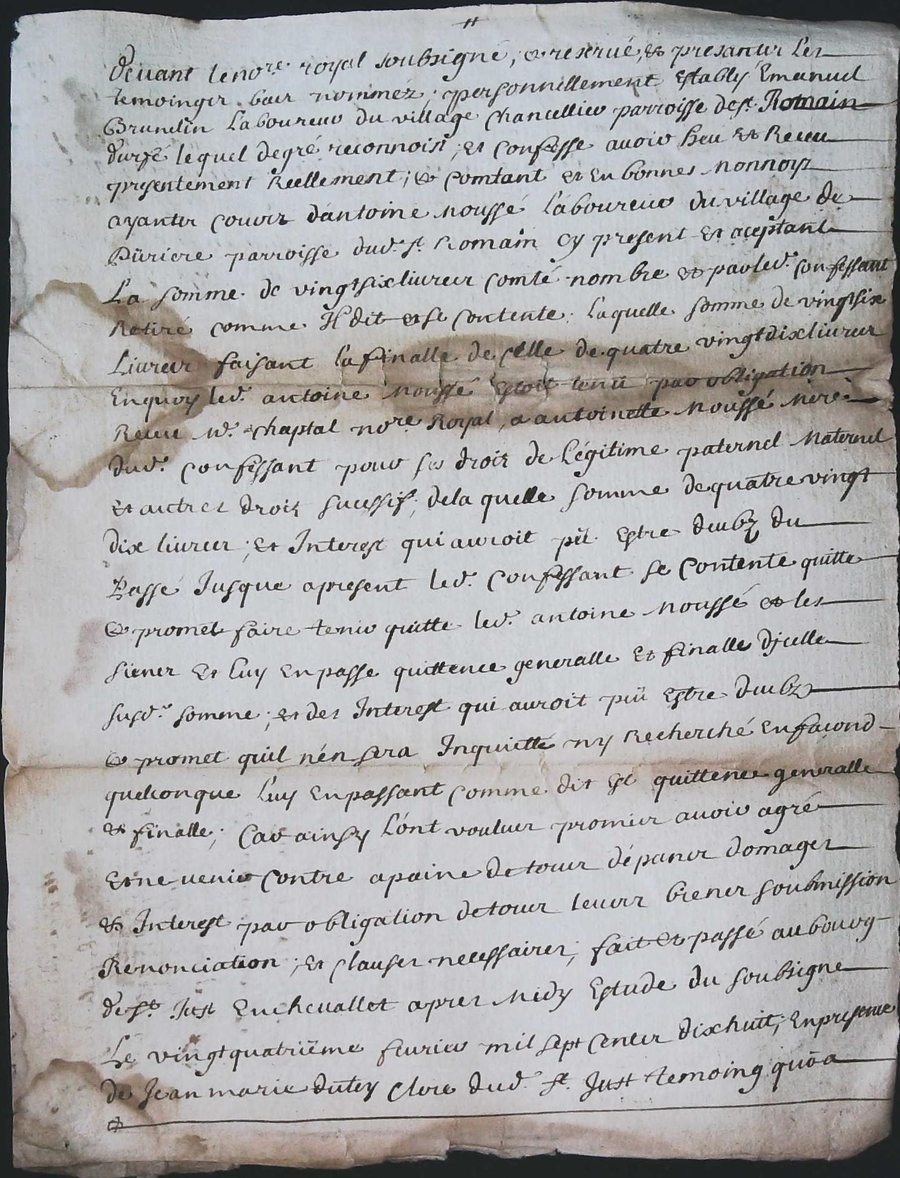 devant le no.re royal soubsigné, et reservé, et presantz les
temoingtz bas nommez, personnellement Estably Emanuel
Brunelin Laboureur du village Chancellier parroisse de st. Romain
durfé lequel de gré reconnoist, et Confesse avoir heu et Receu
presentement Reellement, et Comtant et En bonnes monnoys
ayantz couirs d'antoine Moussé Laboureur du village de
Püriere parroisse dud. st. Romain Cy present et aceptant
La somme de vingtsix livres comté nombre et par led. Confessant
Retiré comme Il dit et se Contente. Laquelle somme de vingtsix
Livres faisant la finalle de Celle de quatre vingtdix livres
En quoy led. antoine Moussé Estoit tenü par obligation
Receu M.e Chaptal no.re Royal, a antoinette Moussé Mere
dud. Confessant pour ses droiz de Légitime paternel Maternel
et autres droiz sucessifz, de la quelle somme de quatre vingt
dix livres, et Interest qui auroit pü Estre deubz du
Passé Jusque a present led. Confessant se Contente quitte
et promet faire tenir quitte led. antoine Moussé et les
siens et Luy En passe quittence generalle et finalle d'jcelle
susd. somme, et des Interest qui auroit püü Estre deubz
et promet qu'il n'en sera Inquietté ny Recherché En facond
quelconque Luy En passant comme dit Est quittence generalle
et finalle, Car ainsy L'ont voulus promis avoir agré
et ne venir Contre a paine de tous dépans domages
et Interest par obligation de tous leurs biens soubmission
Renonciation, et Clauses necessaires, fait et passé au bourg
de st. Just En chevallet apres Midy Estude du soubsigné
Le vingtquatriëme feurier mil sept Cents dix huit, En presence
de Jean marie dutey Clerc dud. st. Just temoing qui a